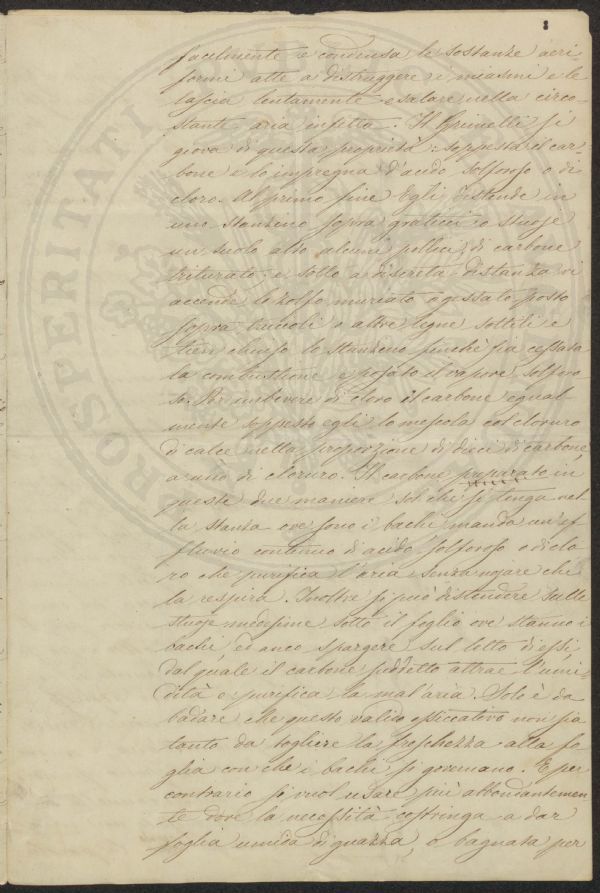 8
facilmente e condensa le sostanze aeri
formi atte a distruggere i miasmi e le
lascia lentamente esalare nella circo-
stante aria infetta. Il Grinelli si
giova di questa proprietà: soppesta il car-
bone e lo impregna d'acido solforoso o di
cloro. Al primo fine Egli distende in
uno stanzino sopra graticci o stuoje
un suolo alto alcuni pollici di carbone
triturato e sotto a discreta distanza vi
accende lo zolfo muriato o gessato posto
sopra truccioli o altre legne sottili e
tien chiuso lo stanzino finchè sia cessata
la combustione e posato il vapore solforo-
so. Per imbevere di cloro il carbone egual-
mente soppesto egli lo mescola col cloruro
di calce nella proporzione di dieci di carbone
a uno di cloruro. Il carbone preparato in
queste due maniere sol che si tenga nel
la stanza ove sono i bachi manda un'ef
fluvio continuo di acido solforoso o di clo
ro che purifica l'aria senza nojare chi
la respira. Inoltre si può distendere sulle
stuoje medesime sotto il foglio ove stanno i
bachi ed anco spargere sul letto di essi
dal quale il carbone suddetto attrae l'umi-
dità e purifica la mal'aria. Solo è da
badare che questo valido essiccativo non sia
tanto da togliere la freschezza alla fo
glia con che i bachi si governano. E per
contrario si vuol usare più abbondantemen-
te dove la necessità costringa a dar
foglia umida di guazza, o bagnata per
PROSPERITATI